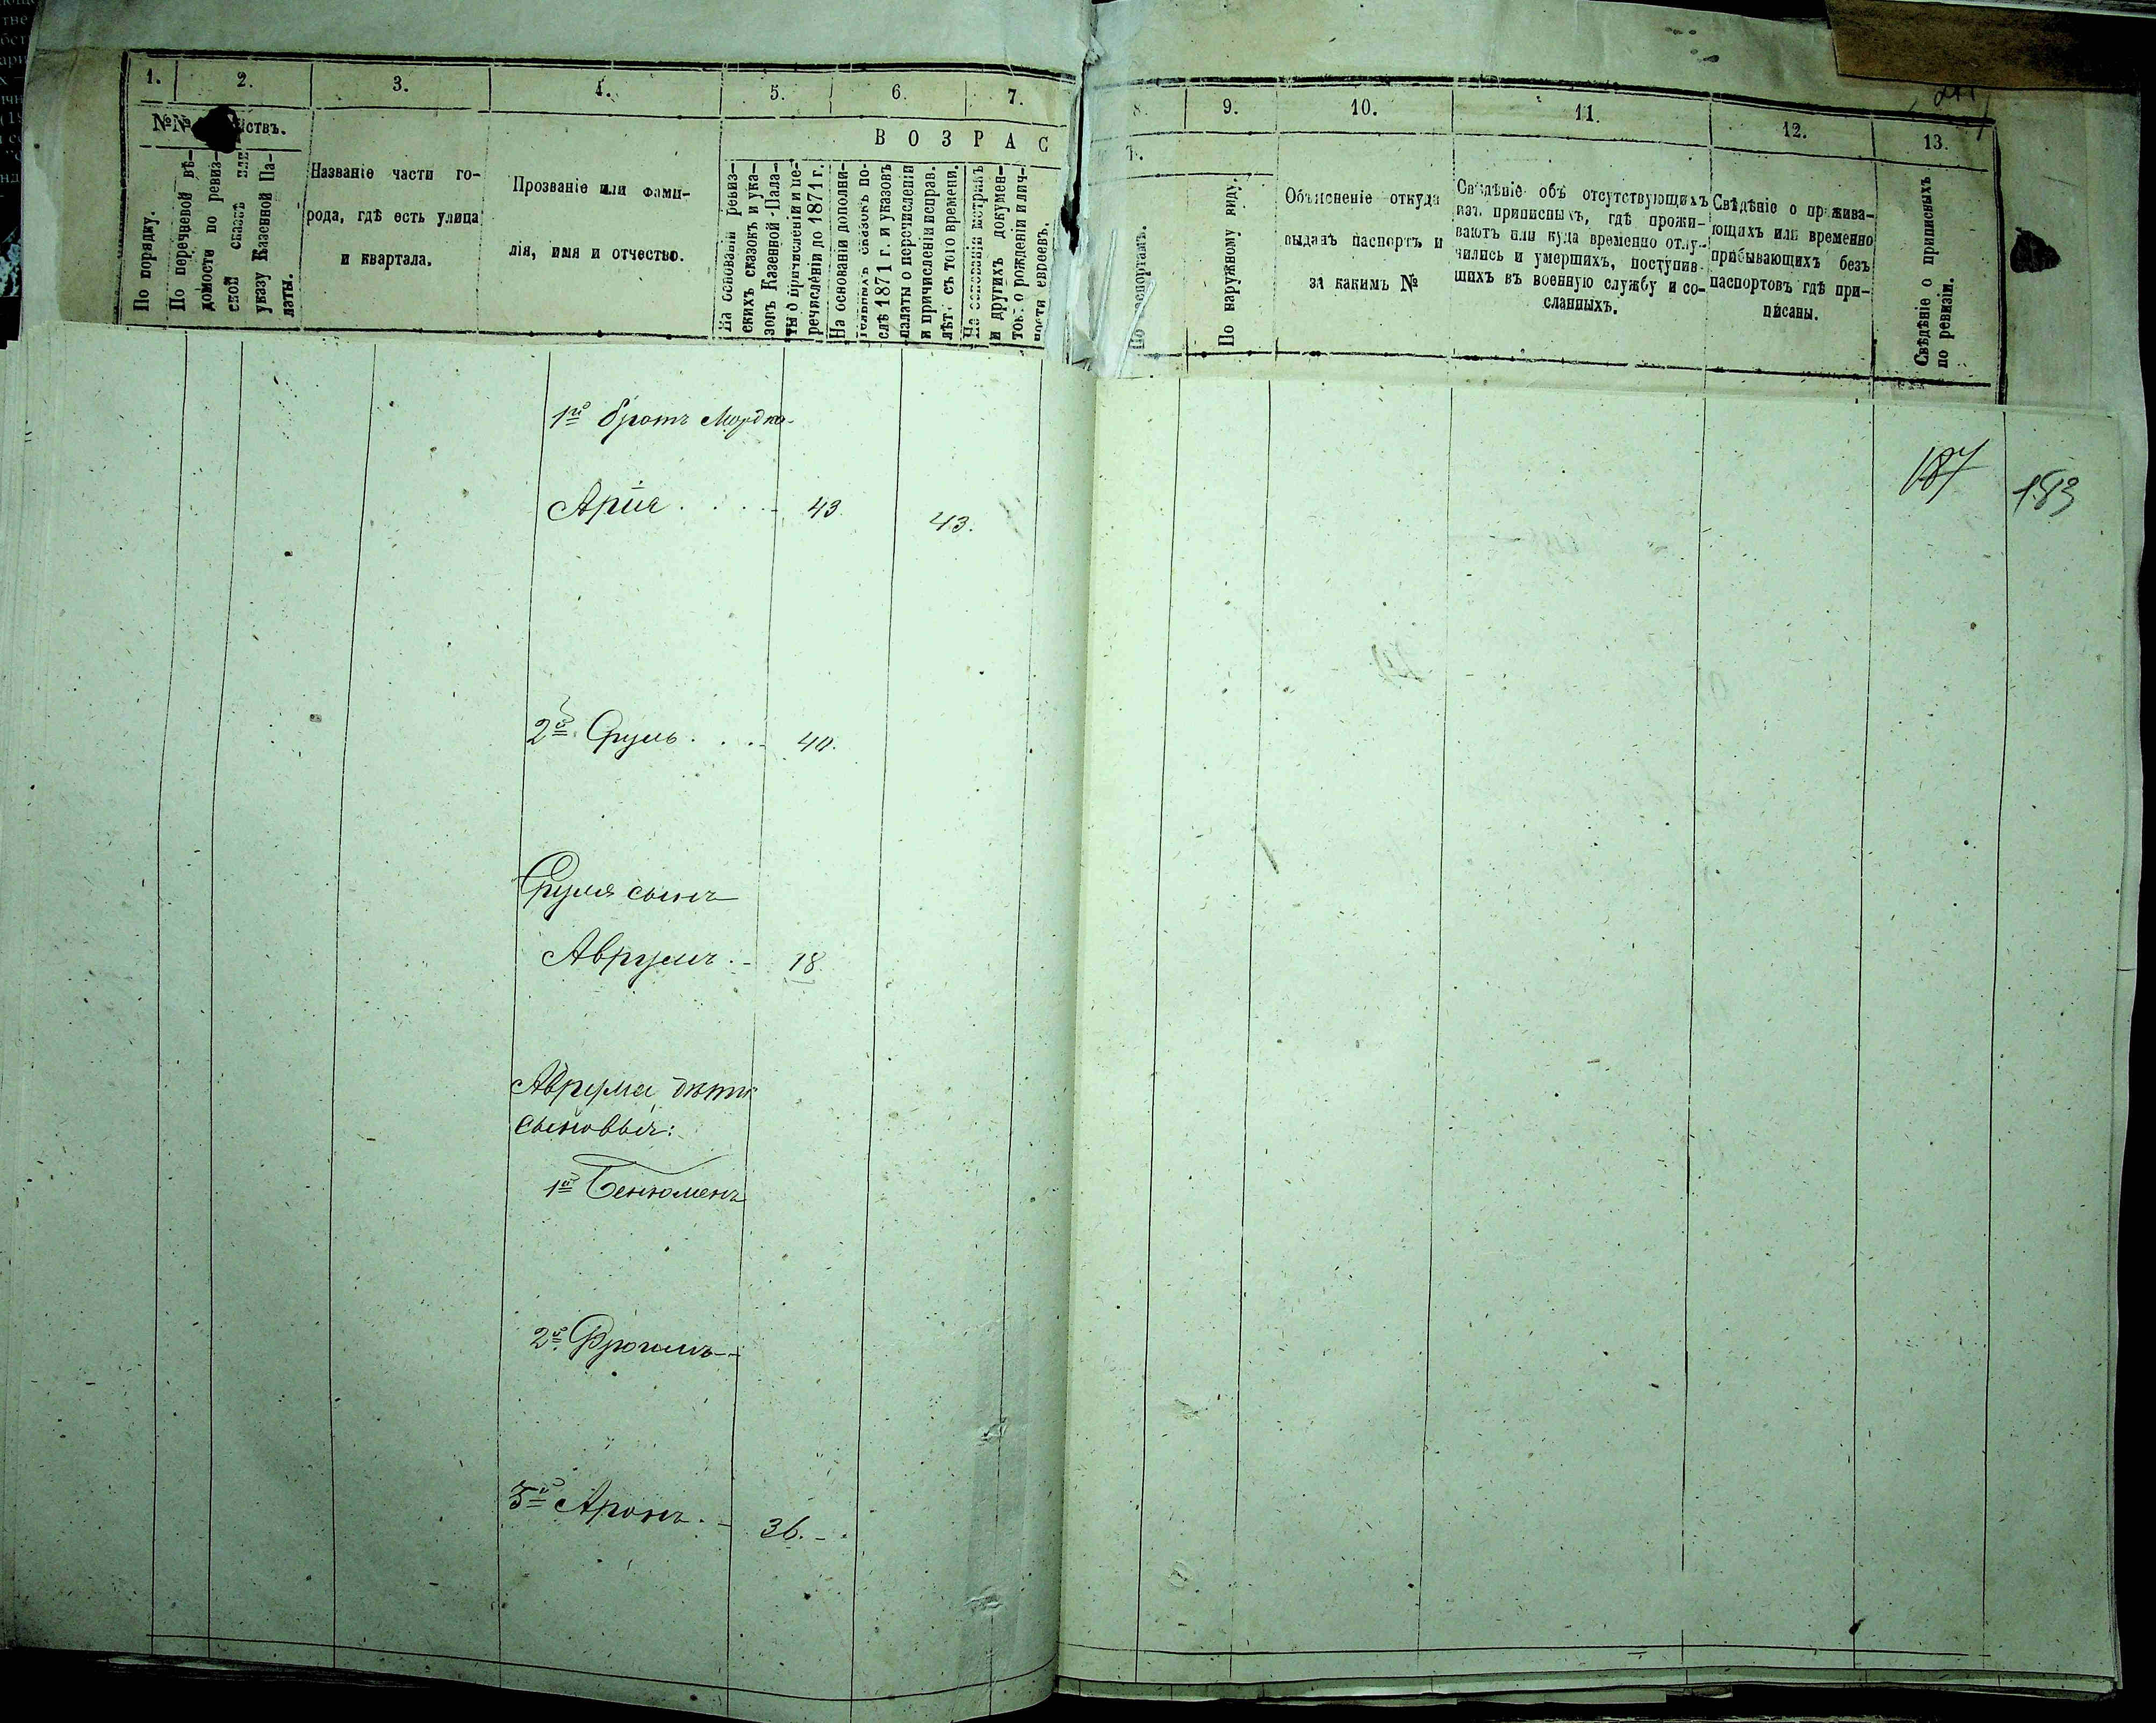 1.
2.
3.
4.
5.
6.
7.
№№ йствъ.
По порядку.
По перечневой вѣ-
домости по ревиз-
ской сказкѣ или
указу Казенной Па-
латы.
Названіе части го-
рода, гдѣ есть улица
и квартала.
Прозваніе или фами-
лія, имя и отчество.
ВОЗРАС
На основаніи ревиз-
скихъ сказокъ и ука-
зовъ Казенной Пала-
ты о причисленіи и пе-
речисленіи до 1871 г.
На основаніи дополни-
тельныхъ сказокъ по-
слѣ 1871 г. и указовъ
палаты о перечисленіи
и причисленіи исправ.
лѣт. съ того времени.
На основаніи метрикъ
и другихъ докумен-
тов. о рожденіи и лич-
ности евреевъ.
8.
9.
10.
11.
12.
13.
Т.
По паспортамъ.
По наружному виду.
Объясненіе откуда
выданъ паспортъ и
за какимъ №
Свѣдѣніе объ отсутствующихъ
изъ приписныхъ, гдѣ прожи-
ваютъ или куда временно отлу-
чились и умершихъ, поступив-
шихъ въ военную службу и со-
сланныхъ.
Свѣдѣніе о прожива-
ющихъ или временно
прибывающихъ безъ
паспортовъ гдѣ при-
писаны.
Свѣдѣніе о приписныхъ
по ревизіи.
1й братъ Мордко-
Арія . . . - 43. 43.
187
183
2й Сруль . . . - 40.
Сруля сынъ
Аврумъ . - 18
Аврума дѣти
сыновья:
1й Бенюменъ
2й Фроимъ -
3й Аронъ . - 36. -